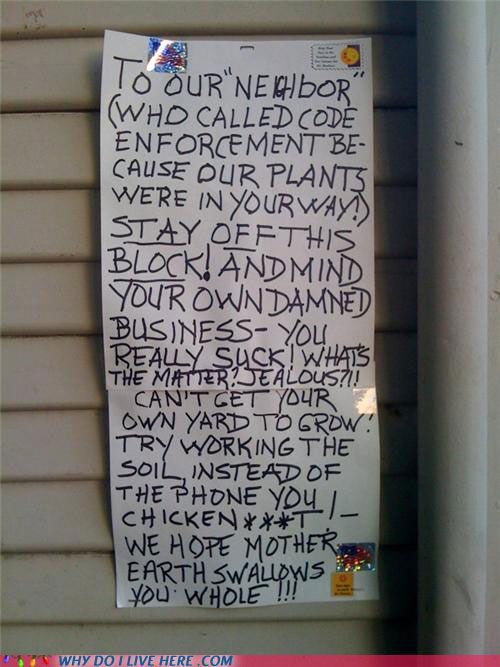 TO OUR "NEIGHBOR"
(WHO CALLED CODE
ENFORCEMENT BE-
CAUSE OUR PLANTS
WERE IN YOUR WAY!)
STAY OFF THIS
BLOCK! AND MIND
YOUR OWN DAMNED
BUSINESS- YOU
REALLY SUCK! WHAT'S
THE MATTER? JEALOUS?!!
CAN'T GET YOUR
OWN YARD TO GROW?
TRY WORKING THE
SOIL, INSTEAD OF
THE PHONE YOU
CHICKEN***T!-
WE HOPE MOTHER
EARTH SWALLOWS
YOU WHOLE!!!
WHY DO I LIVE HERE.COM